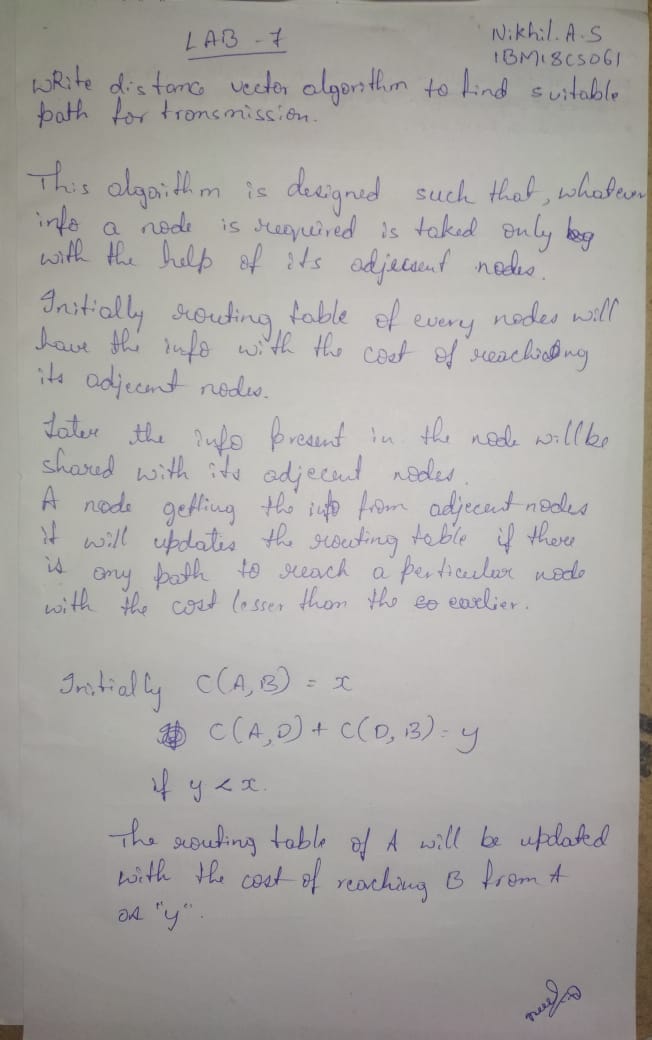 LAB - 7
Nikhil. A. S
1BM18CS061
Write distance vector algorithm to find suitable
path for transmission.
This algorithm is designed such that, whatever
info a node is required is taked only
with the help of its adjecent nodes.
Initially routing table of every nodes will
have the info with the cost of reaching
its adjecent nodes.
Later the info present in the node will be
shared with its adjecent nodes.
A node getting the info from adjecent nodes
it will updates the routing table if there
is any path to reach a perticular node
with the cost lesser than the earlier.
Initially C(A,B) = x
C(A,D) + C(D,B) = y
if y < x.
The routing table of A will be updated
with the cost of reaching B from A
as "y".